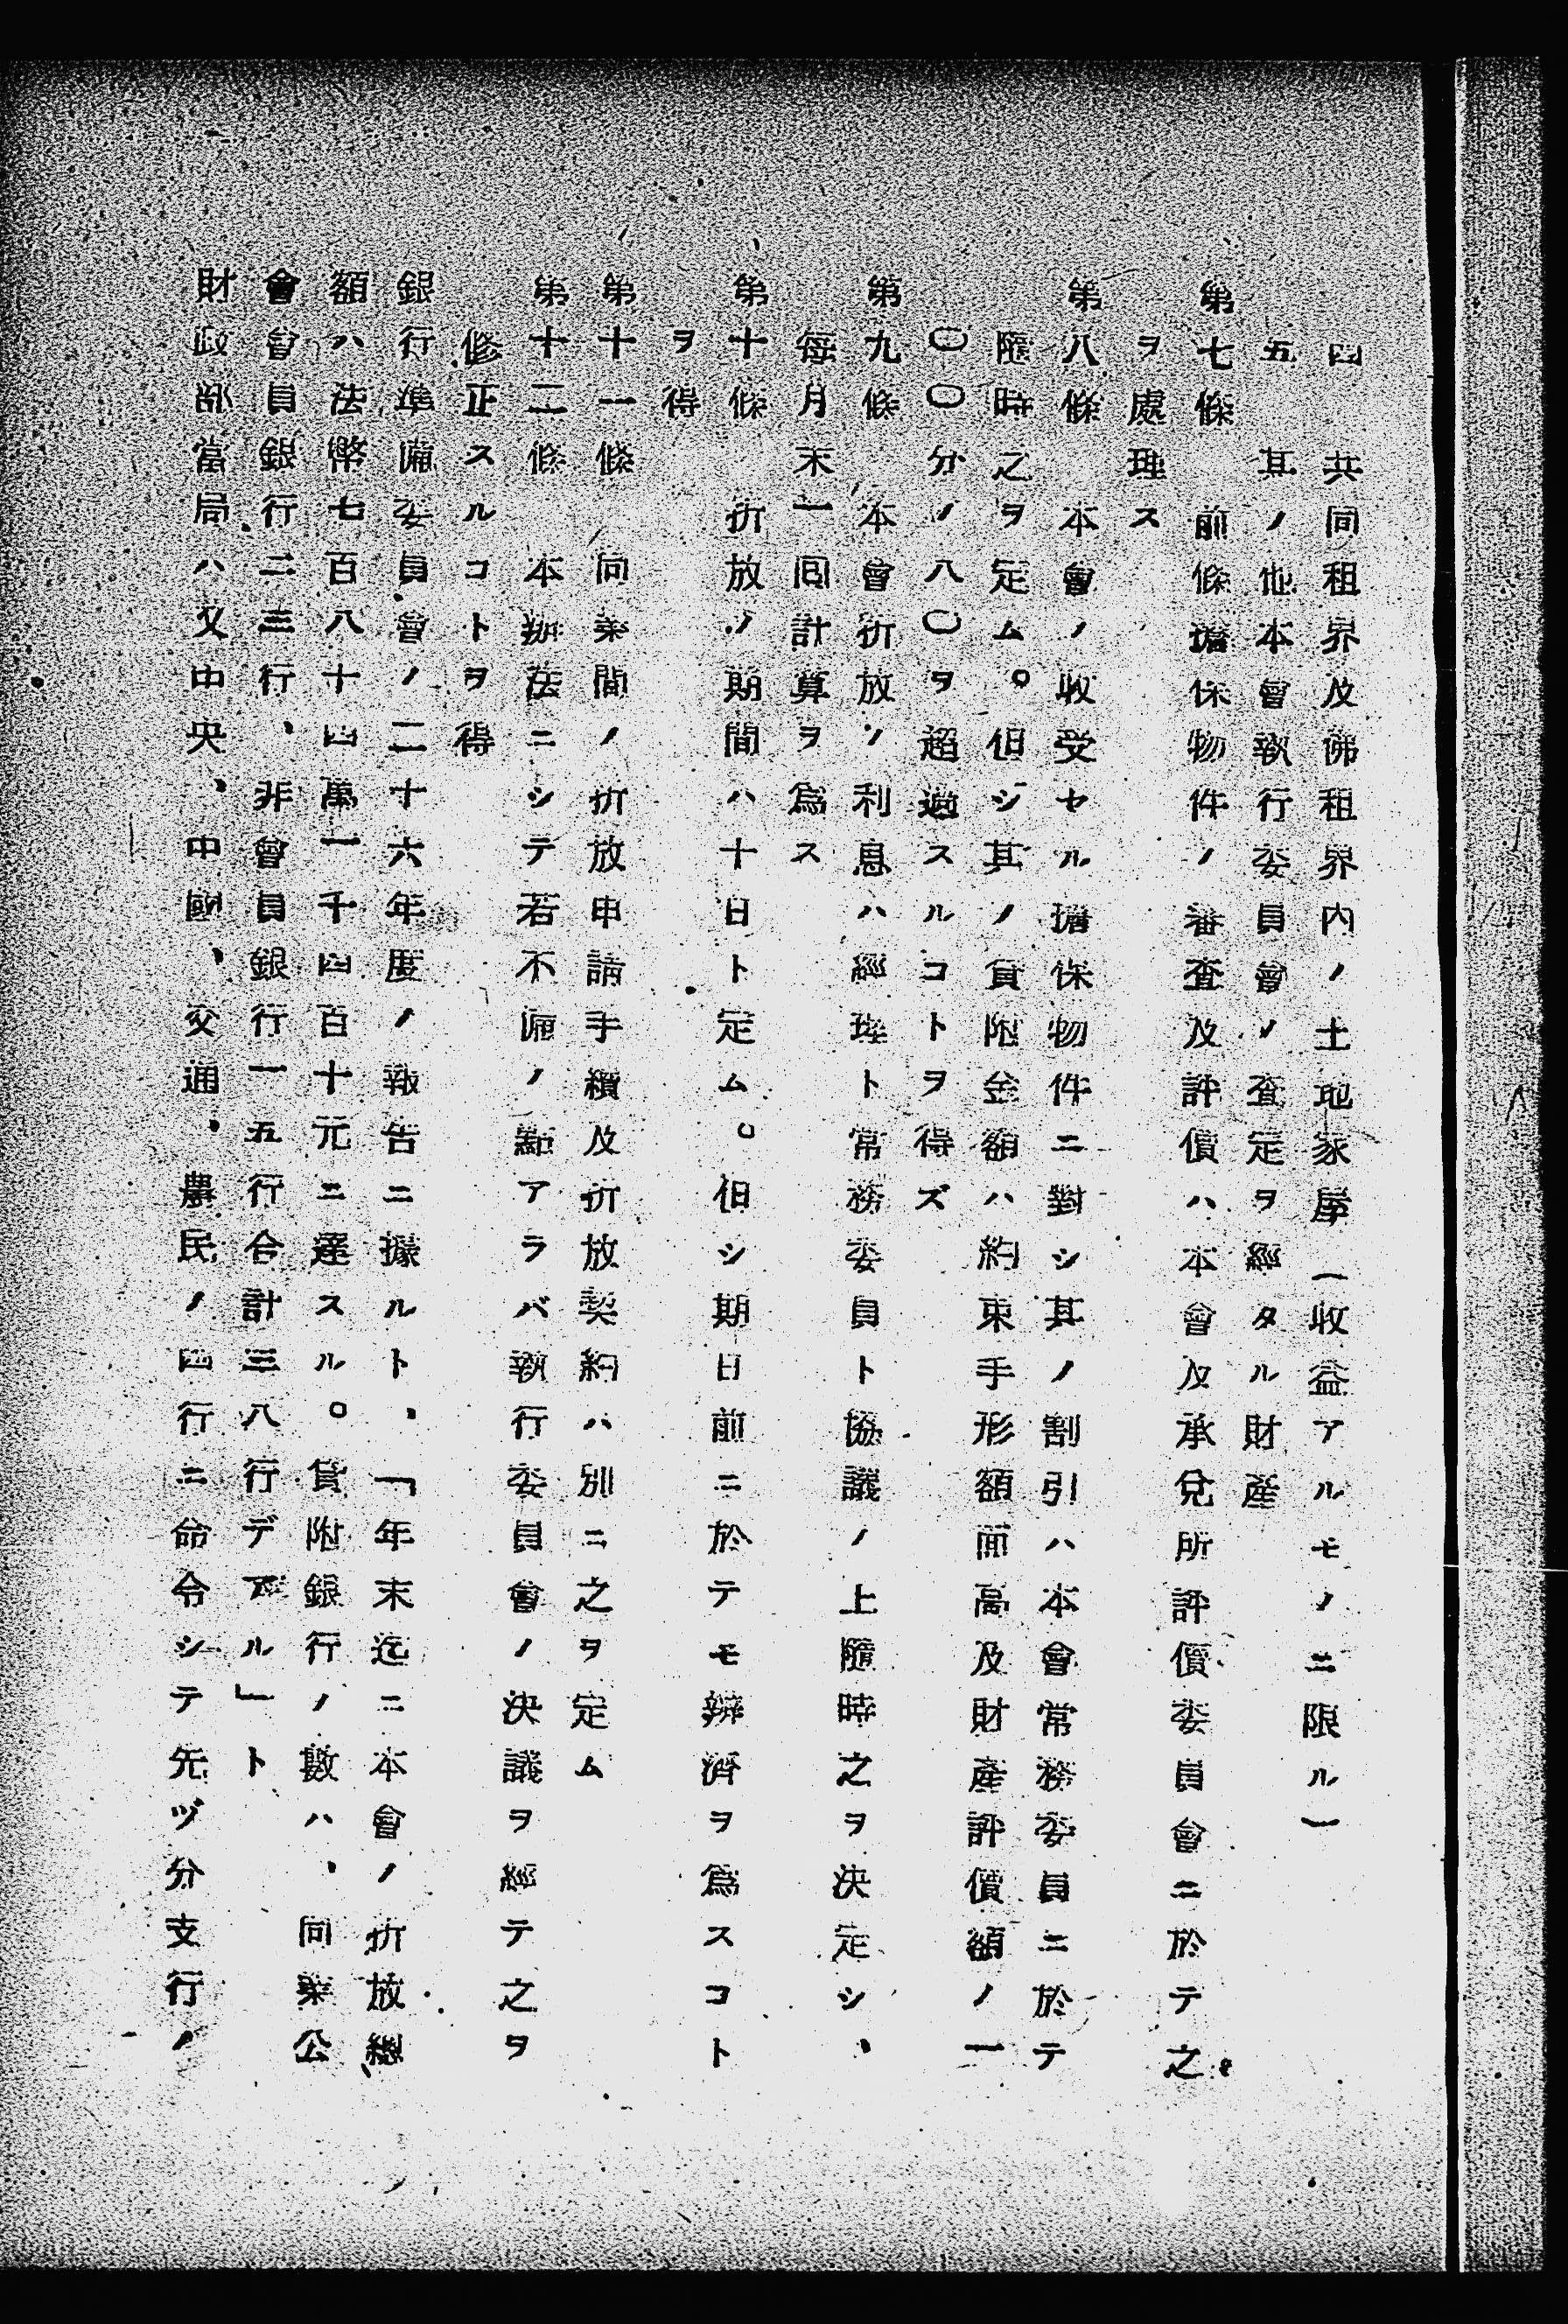 四　共同租界及佛租界内ノ土地家屋（收益アルモノニ限ル）
五　其ノ他本會執行委員會ノ査定ヲ經タル財産
第七條　前條擔保物件ノ審査及評價ハ本會及承兌所評價委員會ニ於テ之
ヲ處理ス
第八條　本會ノ收受セル擔保物件ニ對シ其ノ割引ハ本會常務委員ニ於テ
隨時之ヲ定ム。但シ其ノ貸附金額ハ約束手形額面高及財産評價額ノ一
〇〇分ノ八〇ヲ超過スルコトヲ得ズ
第九條　本會折放ノ利息ハ經理ト常務委員ト協議ノ上隨時之ヲ決定シ、
每月末一回計算ヲ爲ス
第十條　折放ノ期間ハ十日ト定ム。但シ期日前ニ於テモ辨濟ヲ爲スコト
ヲ得
第十一條　同業間ノ折放申請手續及折放契約ハ別ニ之ヲ定ム
第十二條　本辦法ニシテ若不備ノ點アラバ執行委員會ノ決議ヲ經テ之ヲ
修正スルコトヲ得
銀行準備委員會ノ二十六年度ノ報告ニ據ルト、「年末迄ニ本會ノ折放總
額ハ法幣七百八十四萬一千四百十元ニ達スル。貸附銀行ノ數ハ、同業公
會會員銀行二三行、非會員銀行一五行合計三八行デアル」ト
財政部當局ハ又中央、中國、交通、農民ノ四行ニ命令シテ先ヅ分支行ノ